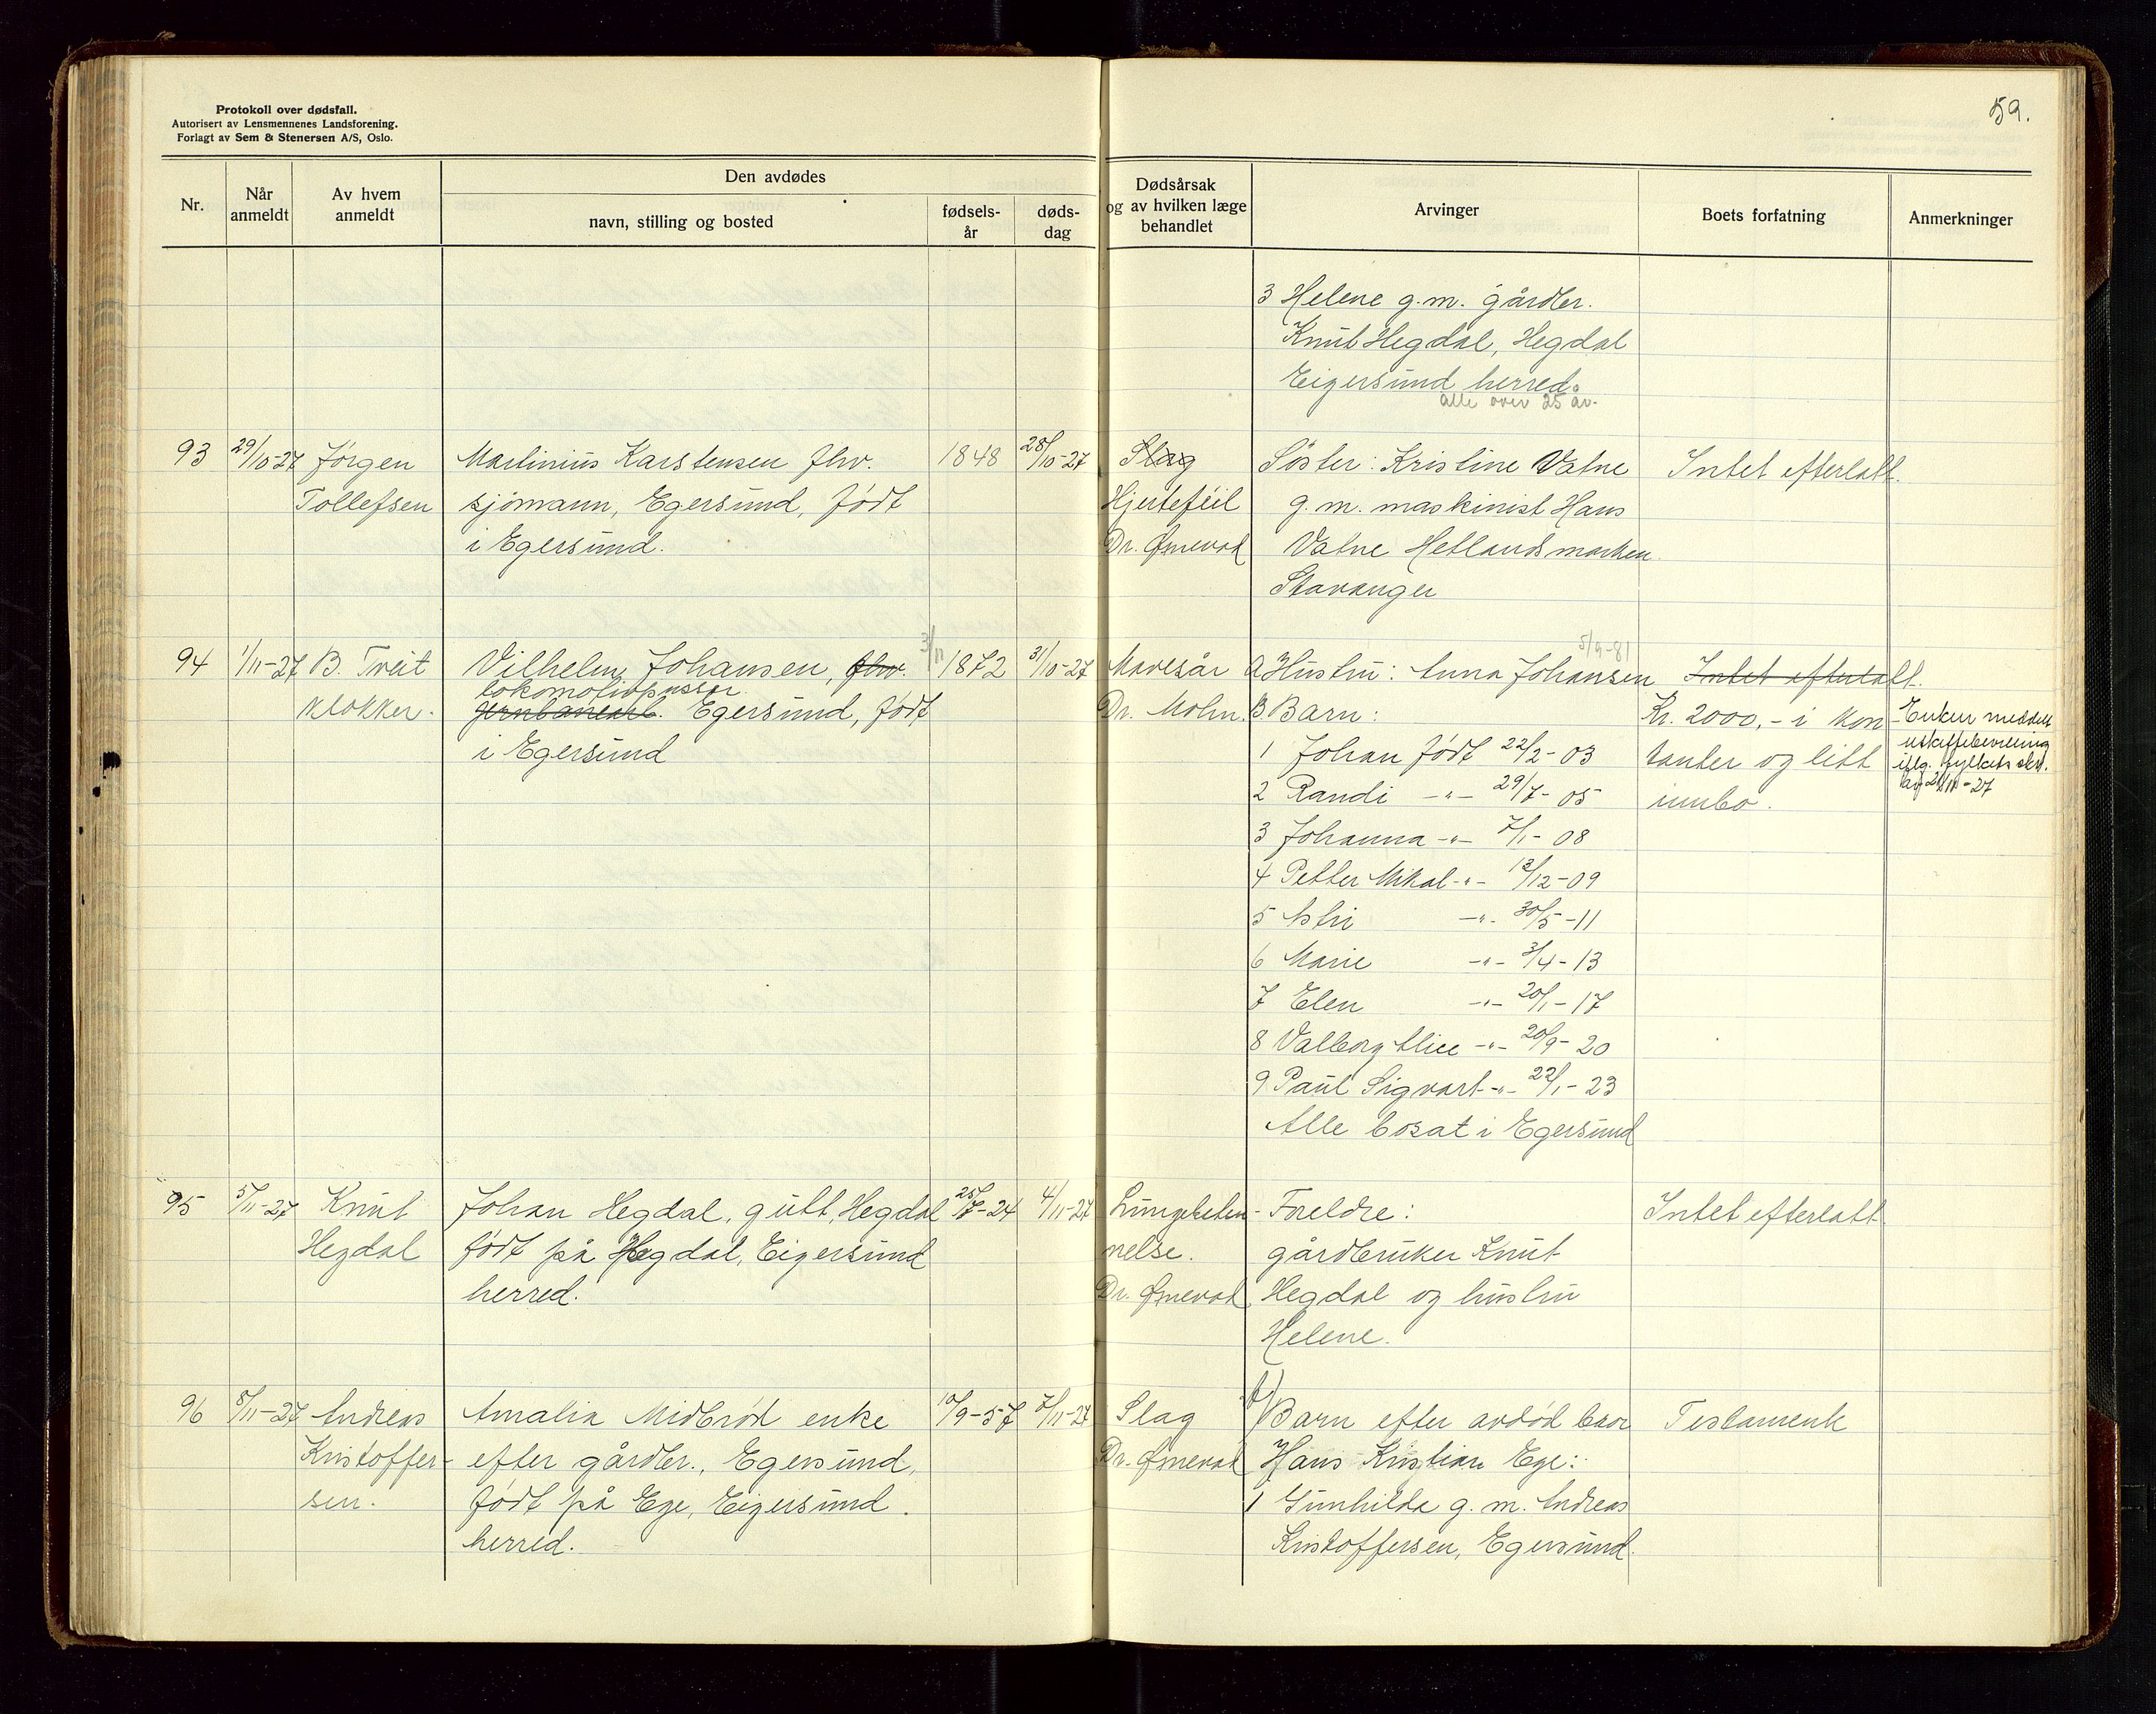 Protokoll over dødsfall.
Autorisert av Lensmennenes Landsforening.
Forlagt av Sem & Stenersen A/S, Oslo.
59.
Nr.
Når anmeldt
Av hvem anmeldt
Den avdødes
navn, stilling og bosted
fødsels-år
døds-dag
Dødsårsak og av hvilken læge behandlet
Arvinger
Boets forfatning
Anmerkninger
3 Helene g.m. gårdbr.
Knut Hegdal, Hegdal
Eigersund herred.
alle over 25 år.
93 29/10-27 Jørgen Martinius Karstensen fhv. 1848 28/10-27 Slag Søster: Kristine Vatne Intet efterlatt.
Tollefsen sjømann, Egersund, født Hjertefeil g.m. maskinist Hans
i Egersund. Dr. Ømevat Vatne Hetlandsmarken
Stavanger
3/11 5/9-81
94 1/11-27 B. Tveit Vilhelm Johansen, fhv. 1872 31/10-27 Mavesår A Hustru: Anna Johansen Intet efterlatt.
lokomotivpusser
klokker. jernbanearb. Egersund, født Dr. Mohn. B Barn: Kr. 2000,- i kon- Enken meddelt
i Egersund 1 Johan født 22/2-03 tanter og litt uskiftebevilling
iflg. fylkets skr.
2 Randi -"- 29/7-05 innbo. av 21/11-27
3 Johanna -"- 7/1-08
4 Petter Mikal -"- 13/12-09
5 Astri -"- 30/5-11
6 Marie -"- 3/4-13
7 Elen -"- 20/1-17
8 Valborg Alice -"- 20/9-20
9 Paul Sigvart -"- 22/1-23
Alle bosat i Egersund
95 5/11-27 Knut Johan Hegdal, gutt, Hegdal 25/7-24 4/11-27 Lungebeten- Foreldre: Intet efterlatt
Hegdal født på Hegdal, Eigersund nelse. gårdbruker Knut
herred. Dr. Ømevat Hegdal og hustru
Helene.
96 8/11-27 Andreas Amalia Midbrød enke 10/9-57 7/11-27 Slag A) Barn efter avdød bror Testament
Kristoffer- efter gårdbr., Egersund, Dr. Ømevat Hans Kristian Ege:
sen. født på Ege, Eigersund 1 Gunhilda g.m. Andreas
herred. Kristoffersen, Egersund.